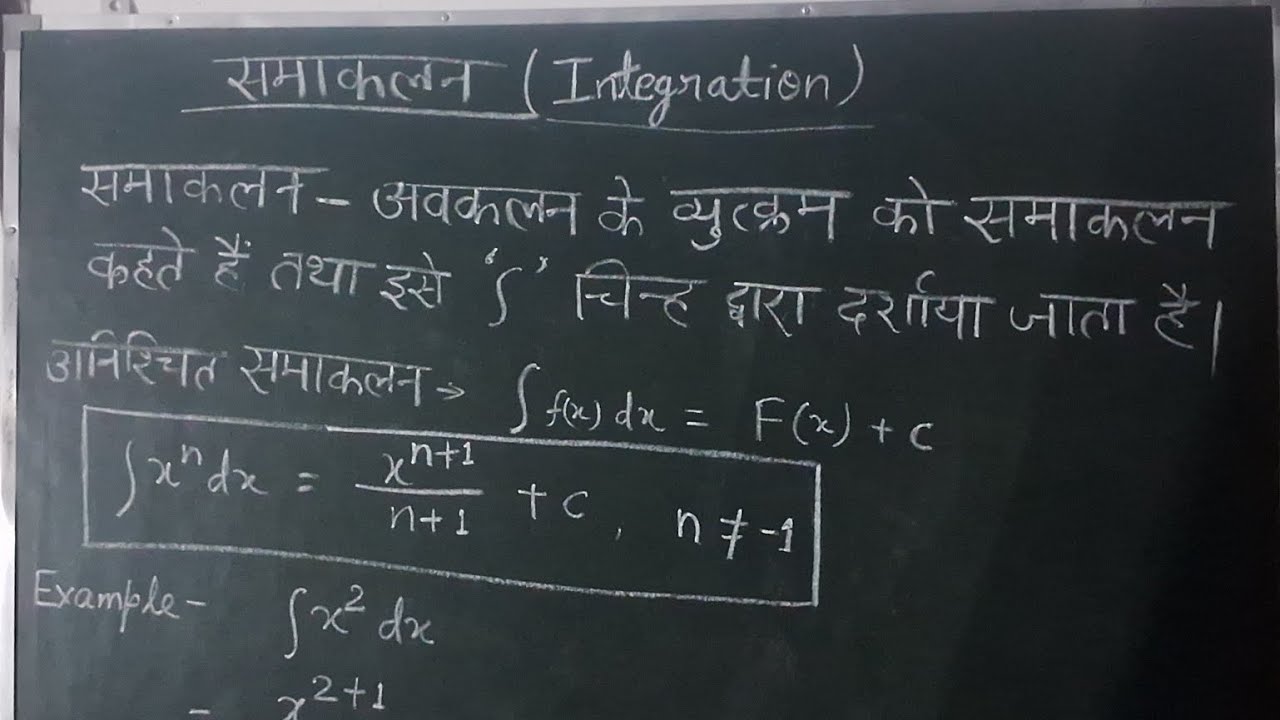 समाकलन (Integration)
समाकलन - अवकलन के व्युत्क्रम को समाकलन
कहते हैं तथा इसे '∫' चिन्ह द्वारा दर्शाया जाता है।
अनिश्चित समाकलन → ∫f(x) dx = F(x) + c
∫xⁿ dx = xⁿ⁺¹/n+1 + c, n ≠ -1
Example - ∫x² dx
= x²⁺¹